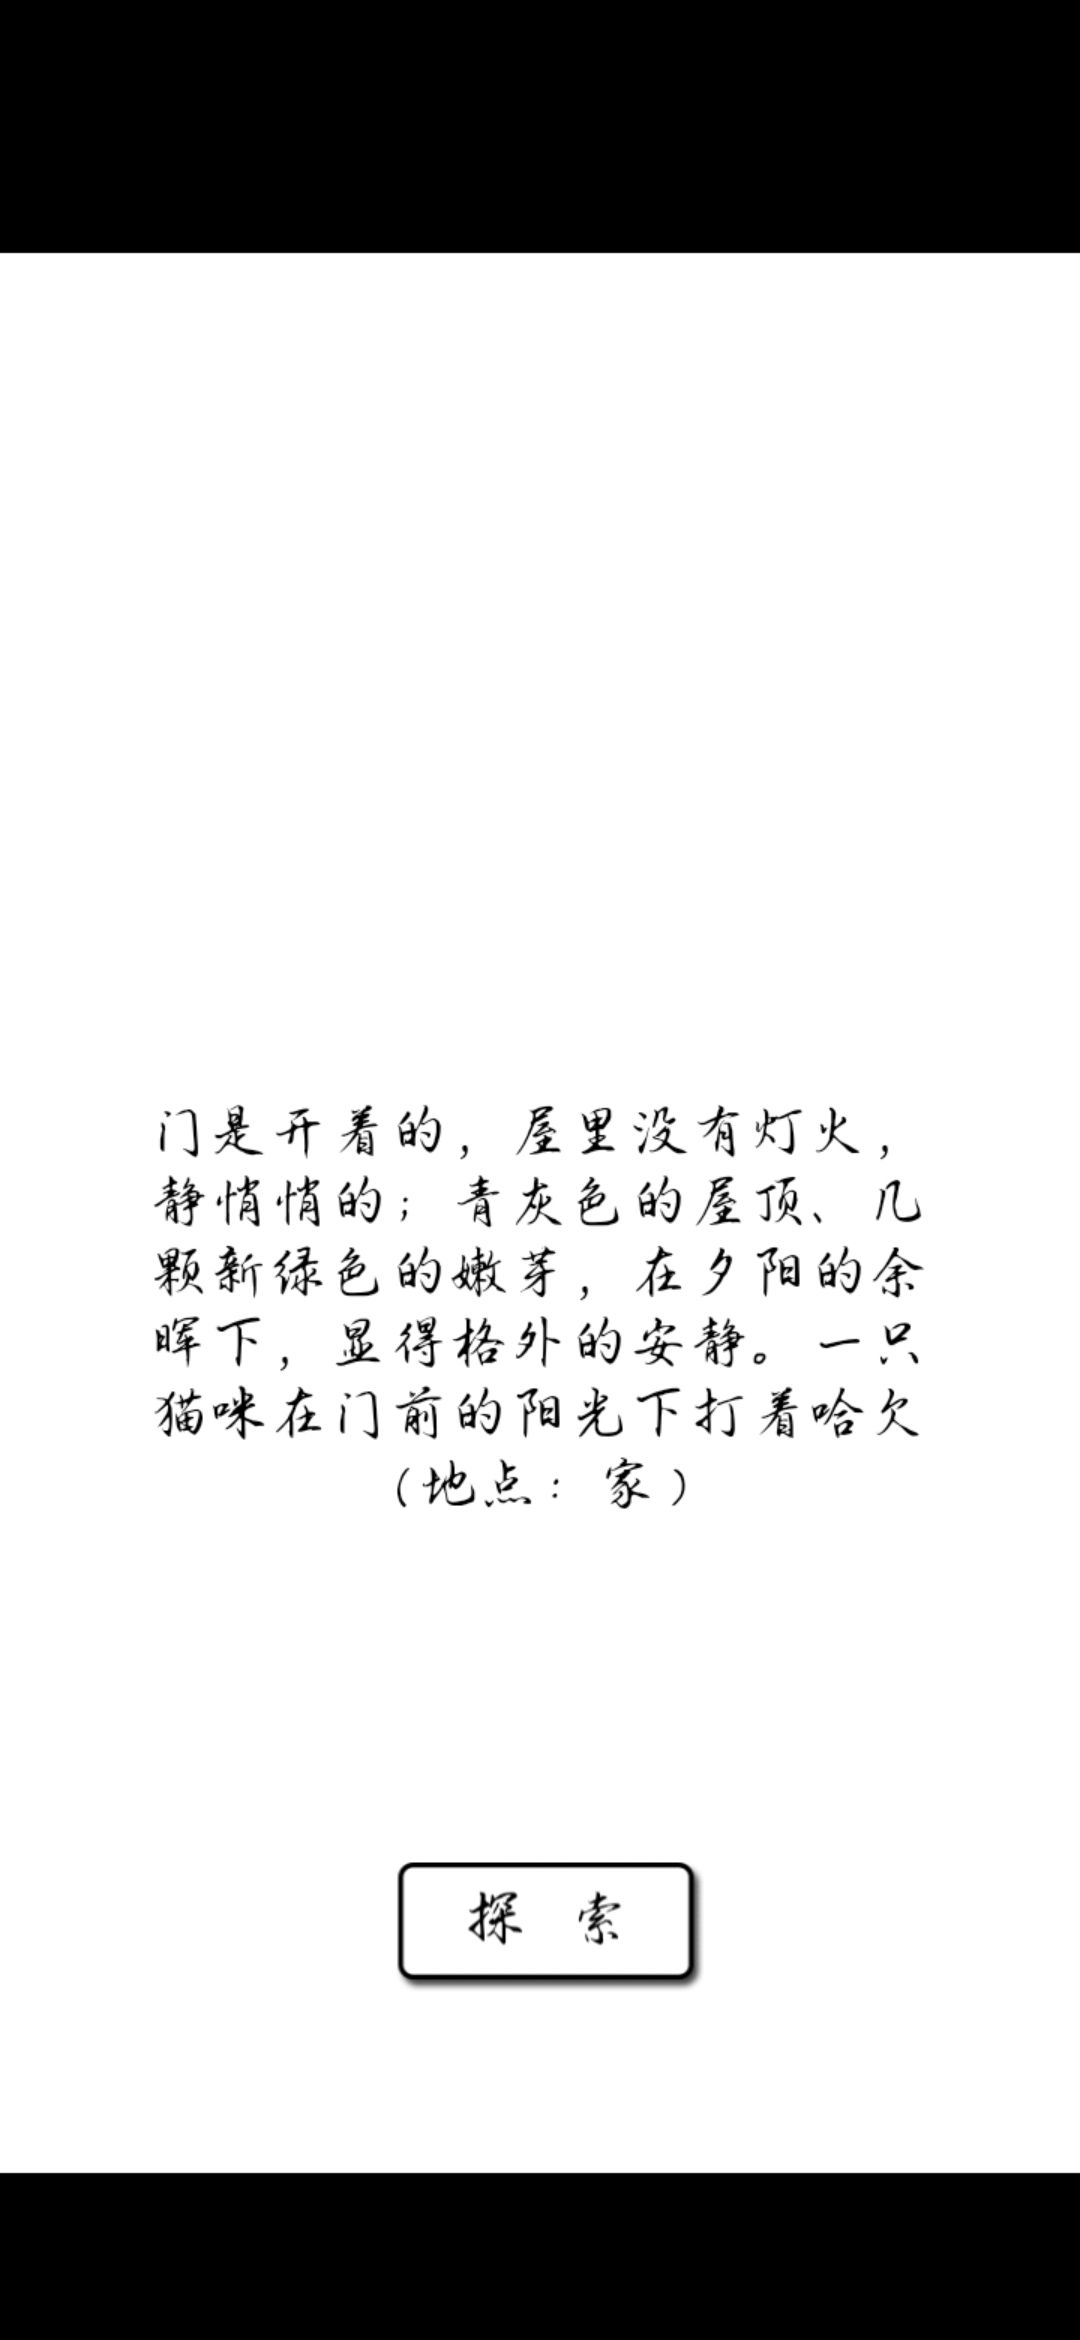 门是开着的，屋里没有灯火，
静悄悄的；青灰色的屋顶、几
颗新绿色的嫩芽，在夕阳的余
晖下，显得格外的安静。一只
猫咪在门前的阳光下打着哈欠
（地点：家）
探 索